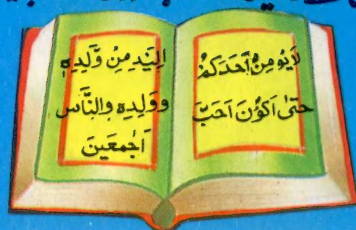 لَا يُؤمِنُ اَحَدَكُمْ
حَتىٰ اَكُوْنَ اَحَبَّ
اِلَيْهِ مِنْ وَّلِدِهٖ
وَوَلِدِهٖ وَالنَّاسِ
اَجْمَعَيْنَ